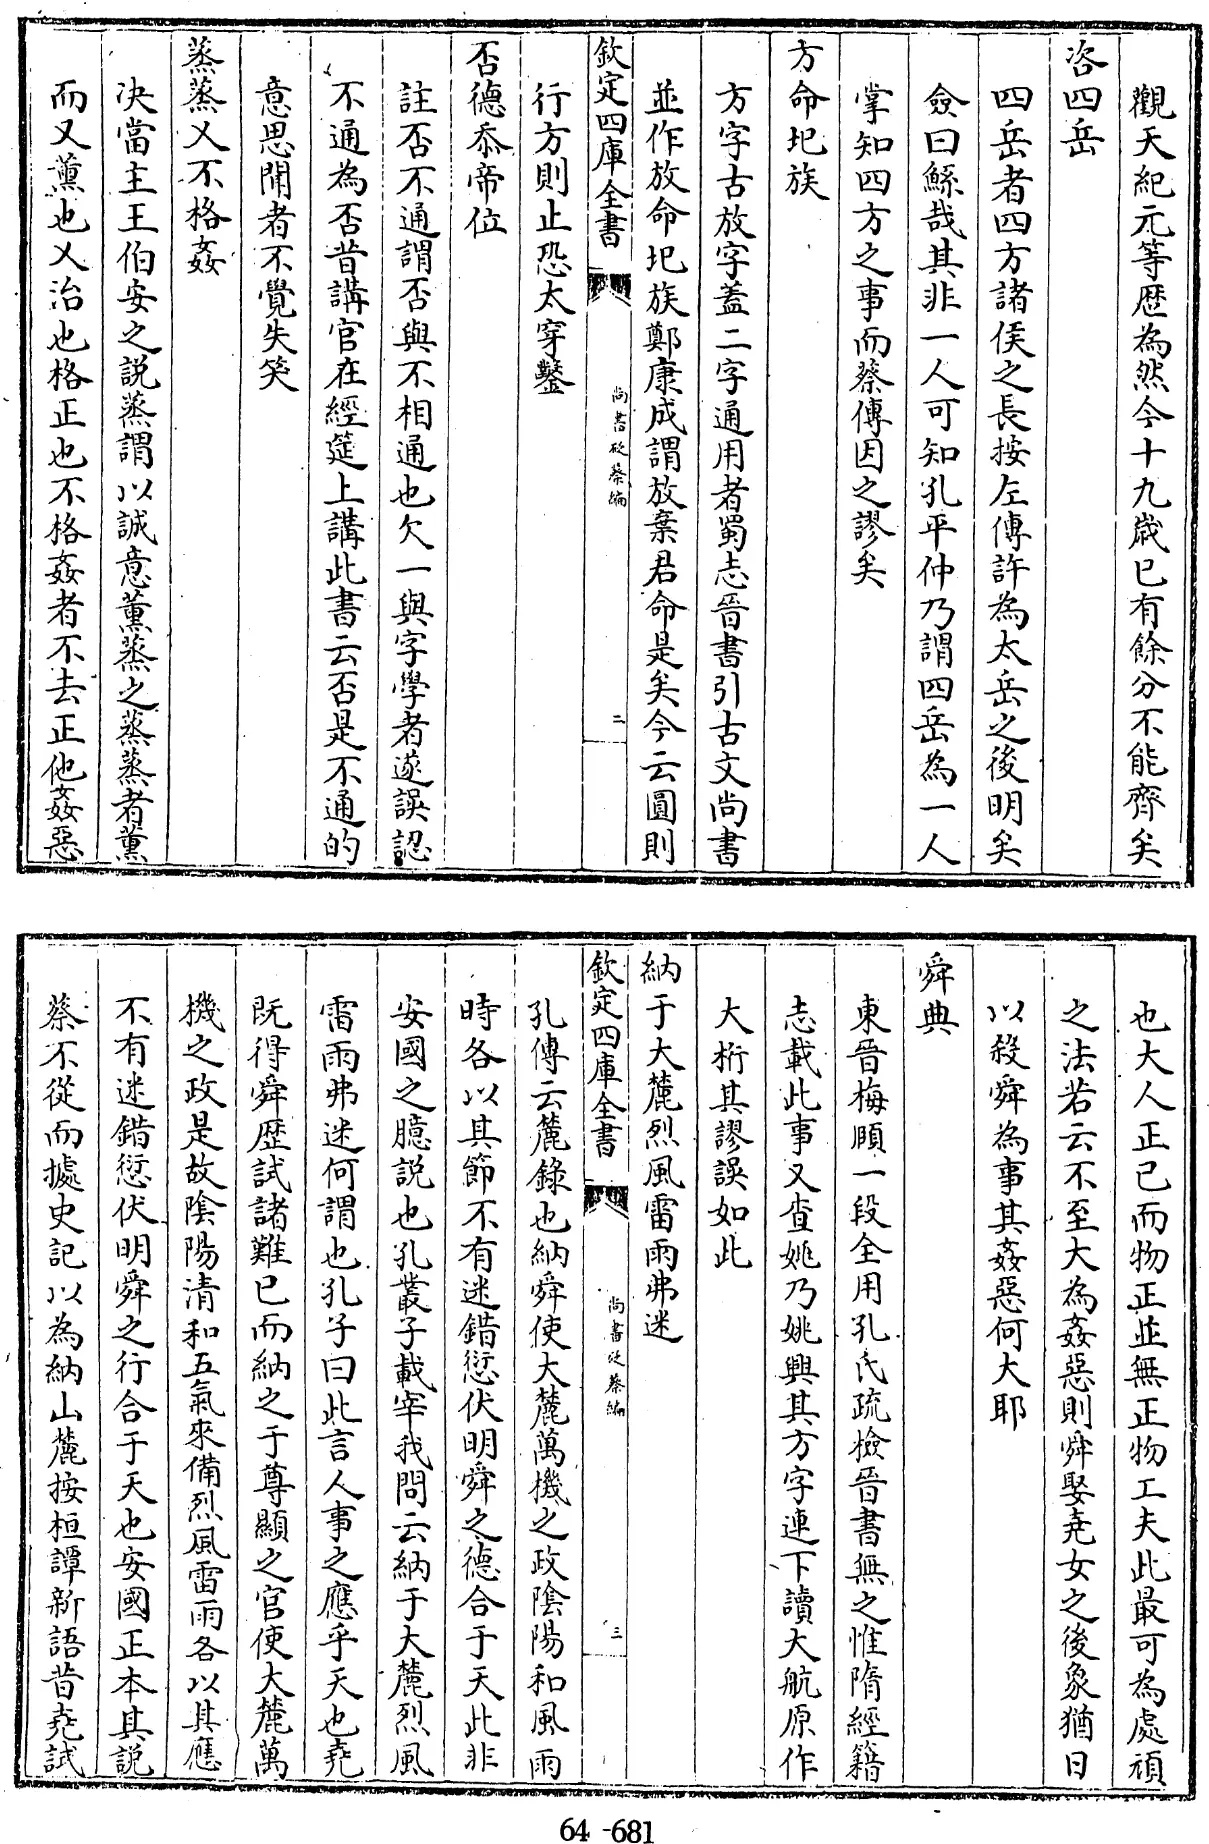 觀天紀元等歴為然今十九歳已有餘分不能齊矣
咨四岳
四岳者四方諸侯之長按左傳許為太岳之後明矣
僉曰鯀哉其非一人可知孔平仲乃謂四岳為一人
掌知四方之事而蔡傳因之謬矣
方命圮族
方字古放字蓋二字通用者蜀志晉書引古文尚書
並作放命圮族鄭康成謂放棄君命是矣今云圓則
欽定四庫全書
尚書砭蔡編
二
行方則止恐太穿鑿
否德忝帝位
註否不通謂否與不相通也欠一與字學者遂誤認
不通為否昔講官在經筵上講此書云否是不通的
意思聞者不覺失笑
蒸蒸乂不格姦
決當主王伯安之説蒸謂以誠意薰蒸之蒸蒸者薰
而又薰也乂治也格正也不格姦者不去正他姦惡
也大人正已而物正並無正物工夫此最可為處頑
之法若云不至大為姦惡則舜娶堯女之後象猶日
以殺舜為事其姦惡何大耶
舜典
東晉梅頤一段全用孔氏疏檢晉書無之惟隋經籍
志載此事又査姚乃姚興其方字連下讀大航原作
大桁其謬誤如此
納于大麓烈風雷雨弗迷
欽定四庫全書
尚書砭蔡編
三
孔傳云麓錄也納舜使大麓萬機之政隂陽和風雨
時各以其節不有迷錯愆伏明舜之德合于天此非
安國之臆説也孔叢子載宰我問云納于大麓烈風
雷雨弗迷何謂也孔子曰此言人事之應乎天也堯
既得舜歴試諸難已而納之于尊顯之官使大麓萬
機之政是故隂陽清和五氣來備烈風雷雨各以其應
不有迷錯愆伏明舜之行合于天也安國正本其説
蔡不從而據史記以為納山麓按桓譚新語昔堯試
64-681